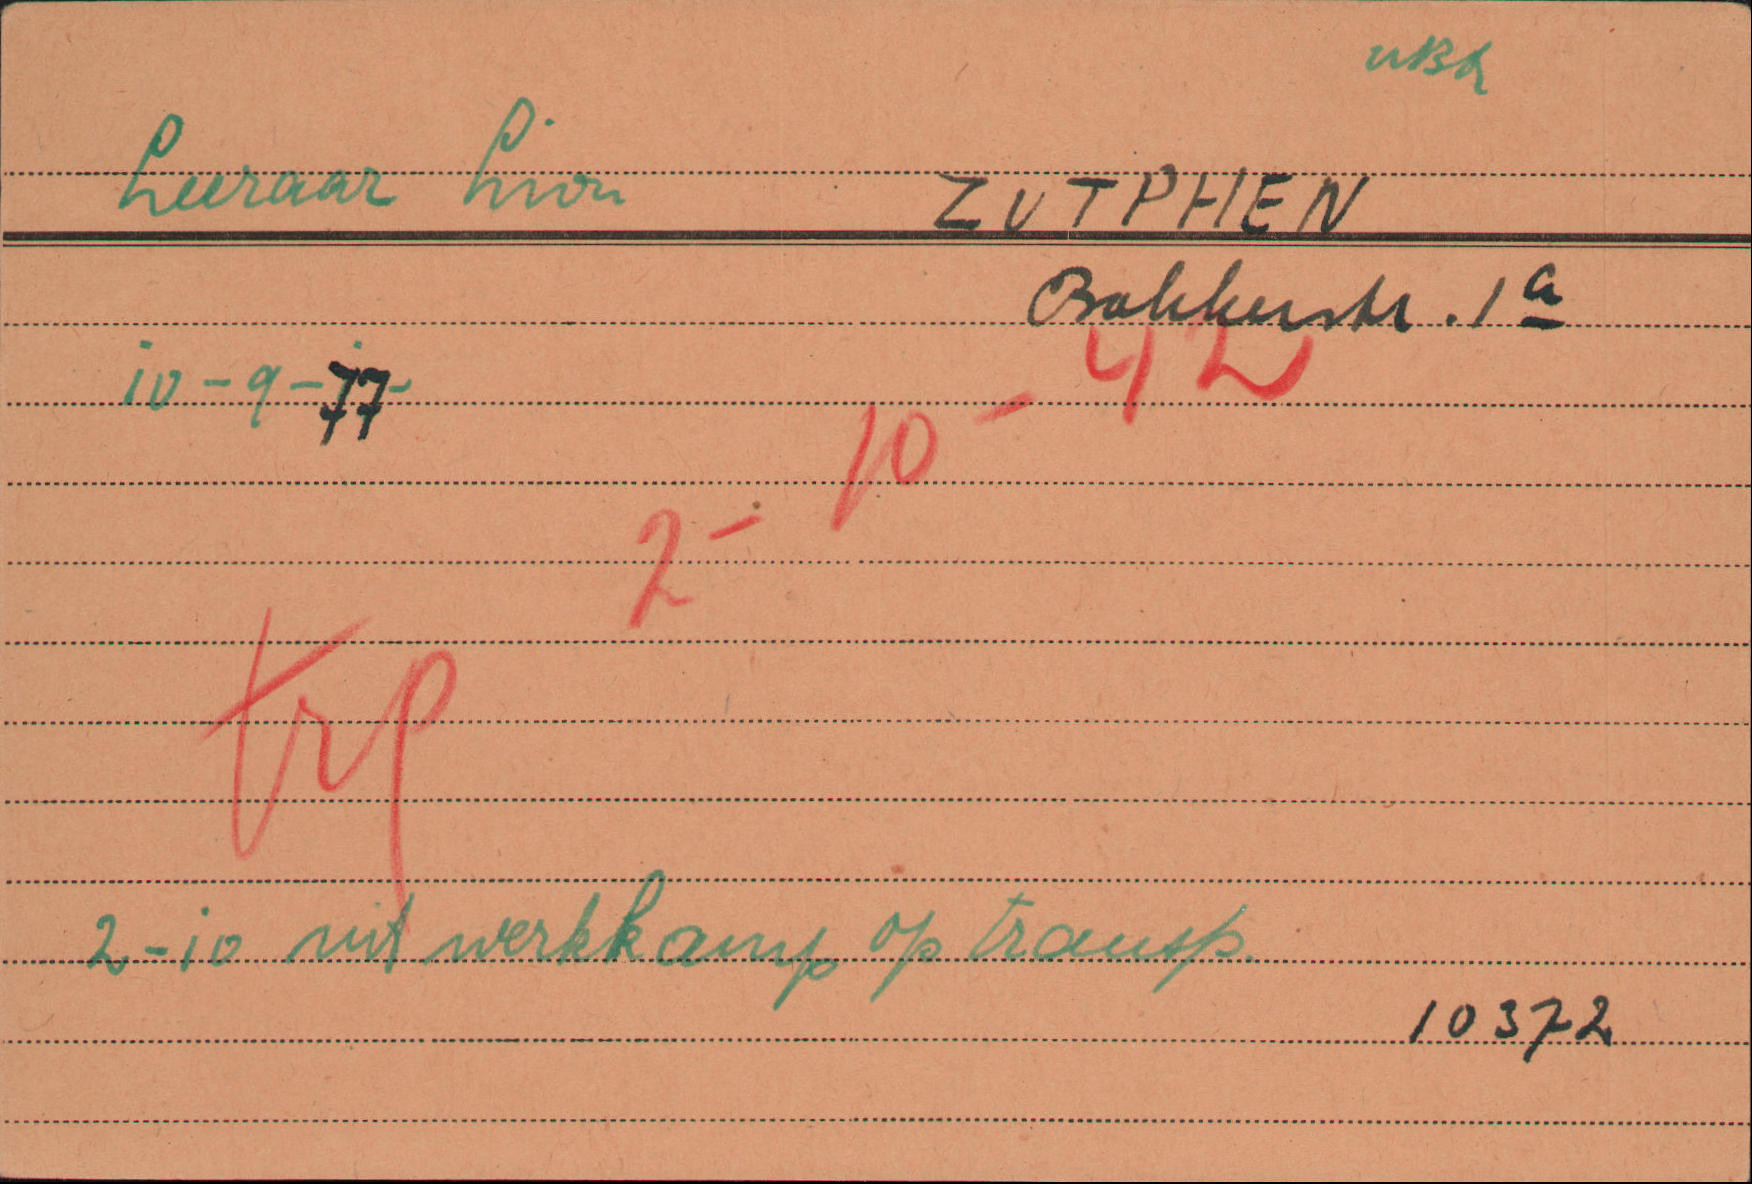 Leeraar Lion
ZUTPHEN
Bakkerstr. 1a
10-9-77
2-10-42
trp
2-10 uit werkkamp op transp.
10372